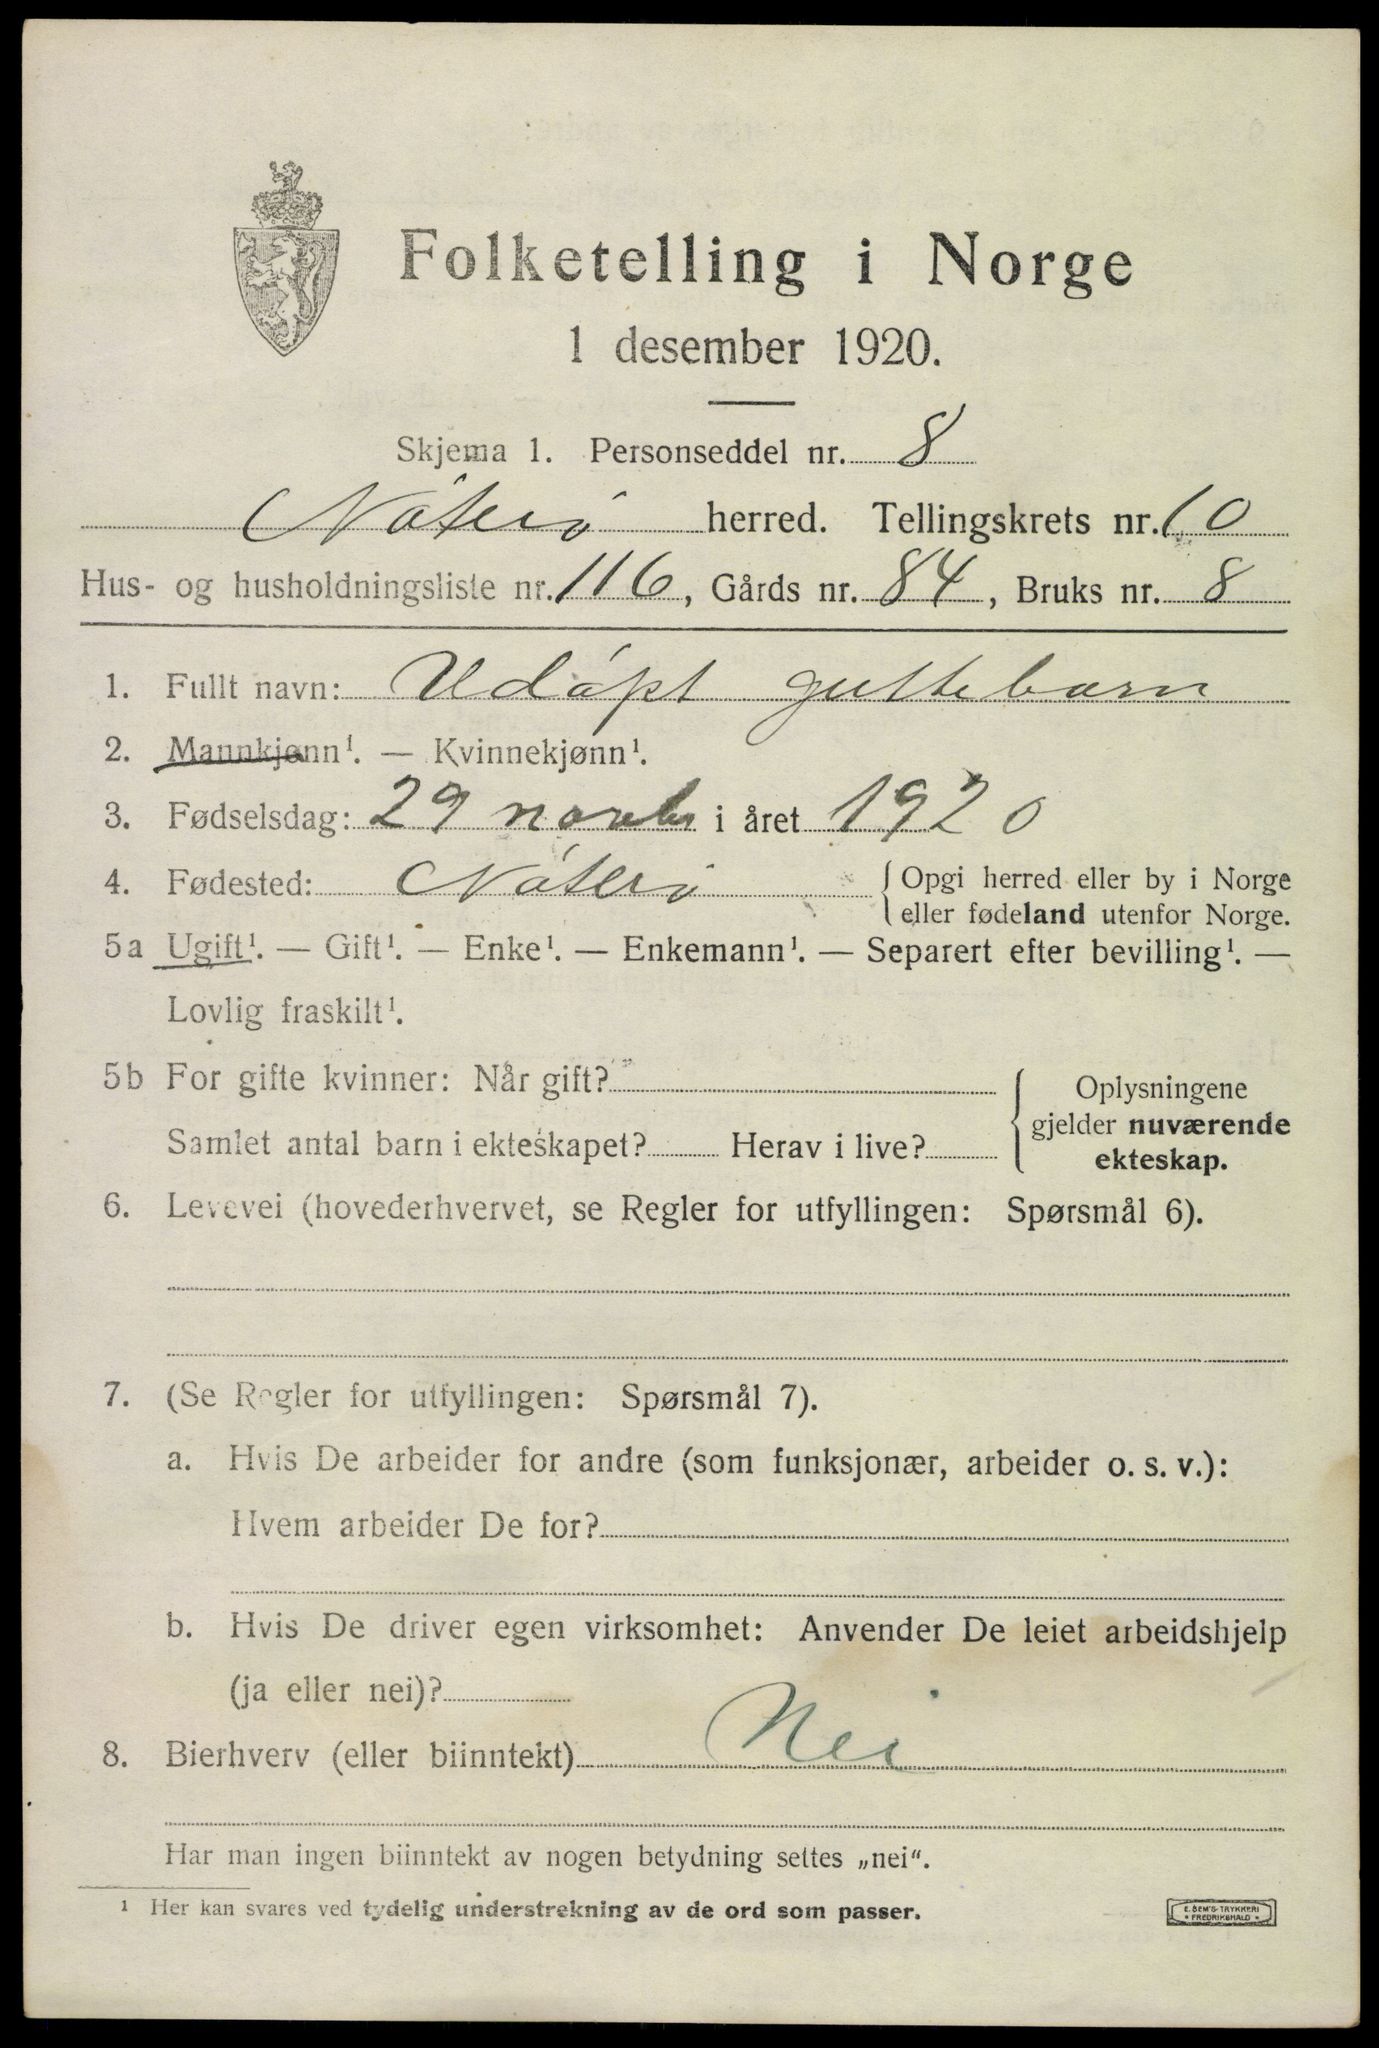 Folketelling i Norge
1 desember 1920.
Skjema 1. Personseddel nr. 8
Nöterö herred. Tellingskrets nr. 10
Hus- og husholdningsliste nr. 116, Gårds nr. 84, Bruks nr. 8
1. Fullt navn: Udöpt guttebarn
2. Mannkjønn¹. — Kvinnekjønn¹.
3. Fødselsdag: 29 novbr i året 1920
4. Fødested: Nöterö { Opgi herred eller by i Norge
eller fødeland utenfor Norge.
5a Ugift¹. — Gift¹. — Enke¹. — Enkemann¹. — Separert efter bevilling¹. —
Lovlig fraskilt¹.
5b For gifte kvinner: Når gift?
Samlet antal barn i ekteskapet? Herav i live?
Oplysningene
gjelder nuværende
ekteskap.
6. Levevei (hovederhvervet, se Regler for utfyllingen: Spørsmål 6).
7. (Se Regler for utfyllingen: Spørsmål 7).
a. Hvis De arbeider for andre (som funksjonær, arbeider o. s. v.):
Hvem arbeider De for?
b. Hvis De driver egen virksomhet: Anvender De leiet arbeidshjelp
(ja eller nei)?
8. Bierhverv (eller biinntekt) Nei
Har man ingen biinntekt av nogen betydning settes „nei“.
¹ Her kan svares ved tydelig understrekning av de ord som passer.
E. SEM'S TRYKKERI
• FREDRIKSHALD •